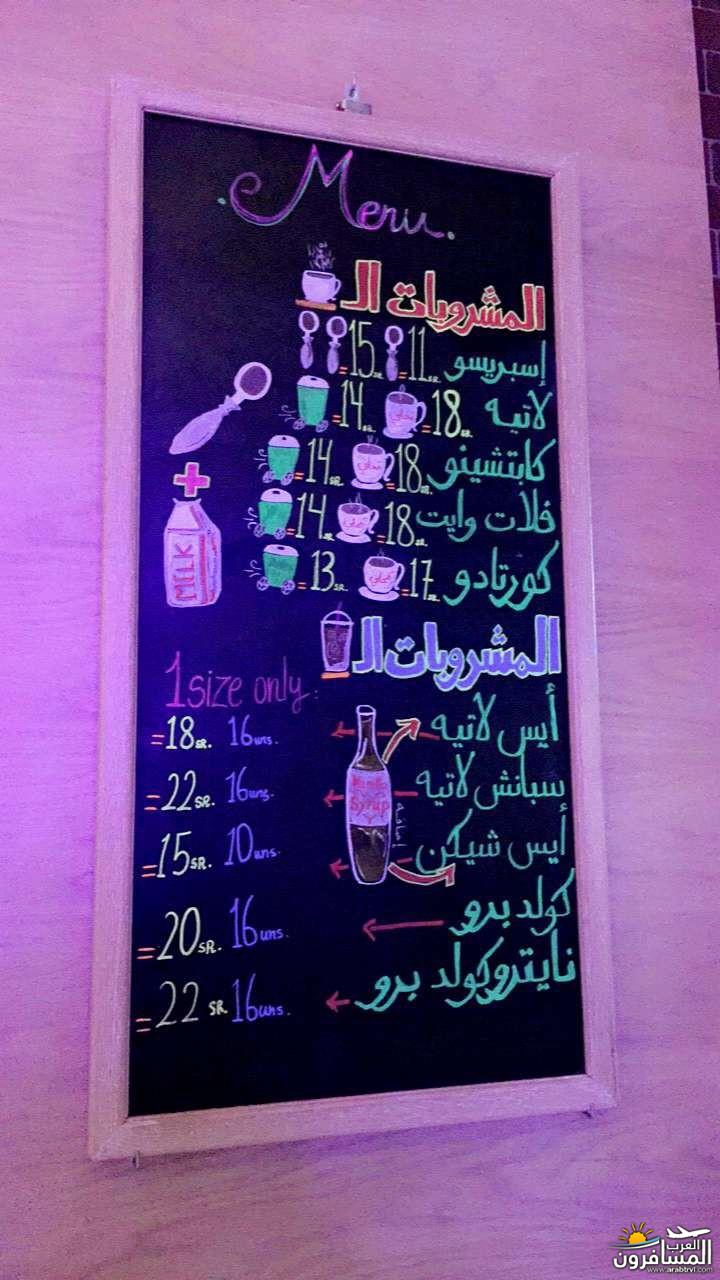 Menu
المشروبات الـ
إسبريسو 11 SR = 15 SR =
لاتيه 18 SR = 14 SR =
كابتشينو 18 SR = 14 SR =
فلات وايت 18 SR = 14 SR =
كورتادو 17 SR = 13 SR =
+
MILK
المشروبات الـ
1 size only:
أيس لاتيه 16 uns. 18 SR. =
سبانش لاتيه 16 uns. 22 SR. =
أيس شيكن 10 uns. 15 SR. =
كولد برو 16 uns. 20 SR. =
نايترو كولد برو 16 uns. 22 SR =
Syrup
إضافة
العرب
المسافرون
www.arabtrvl.com